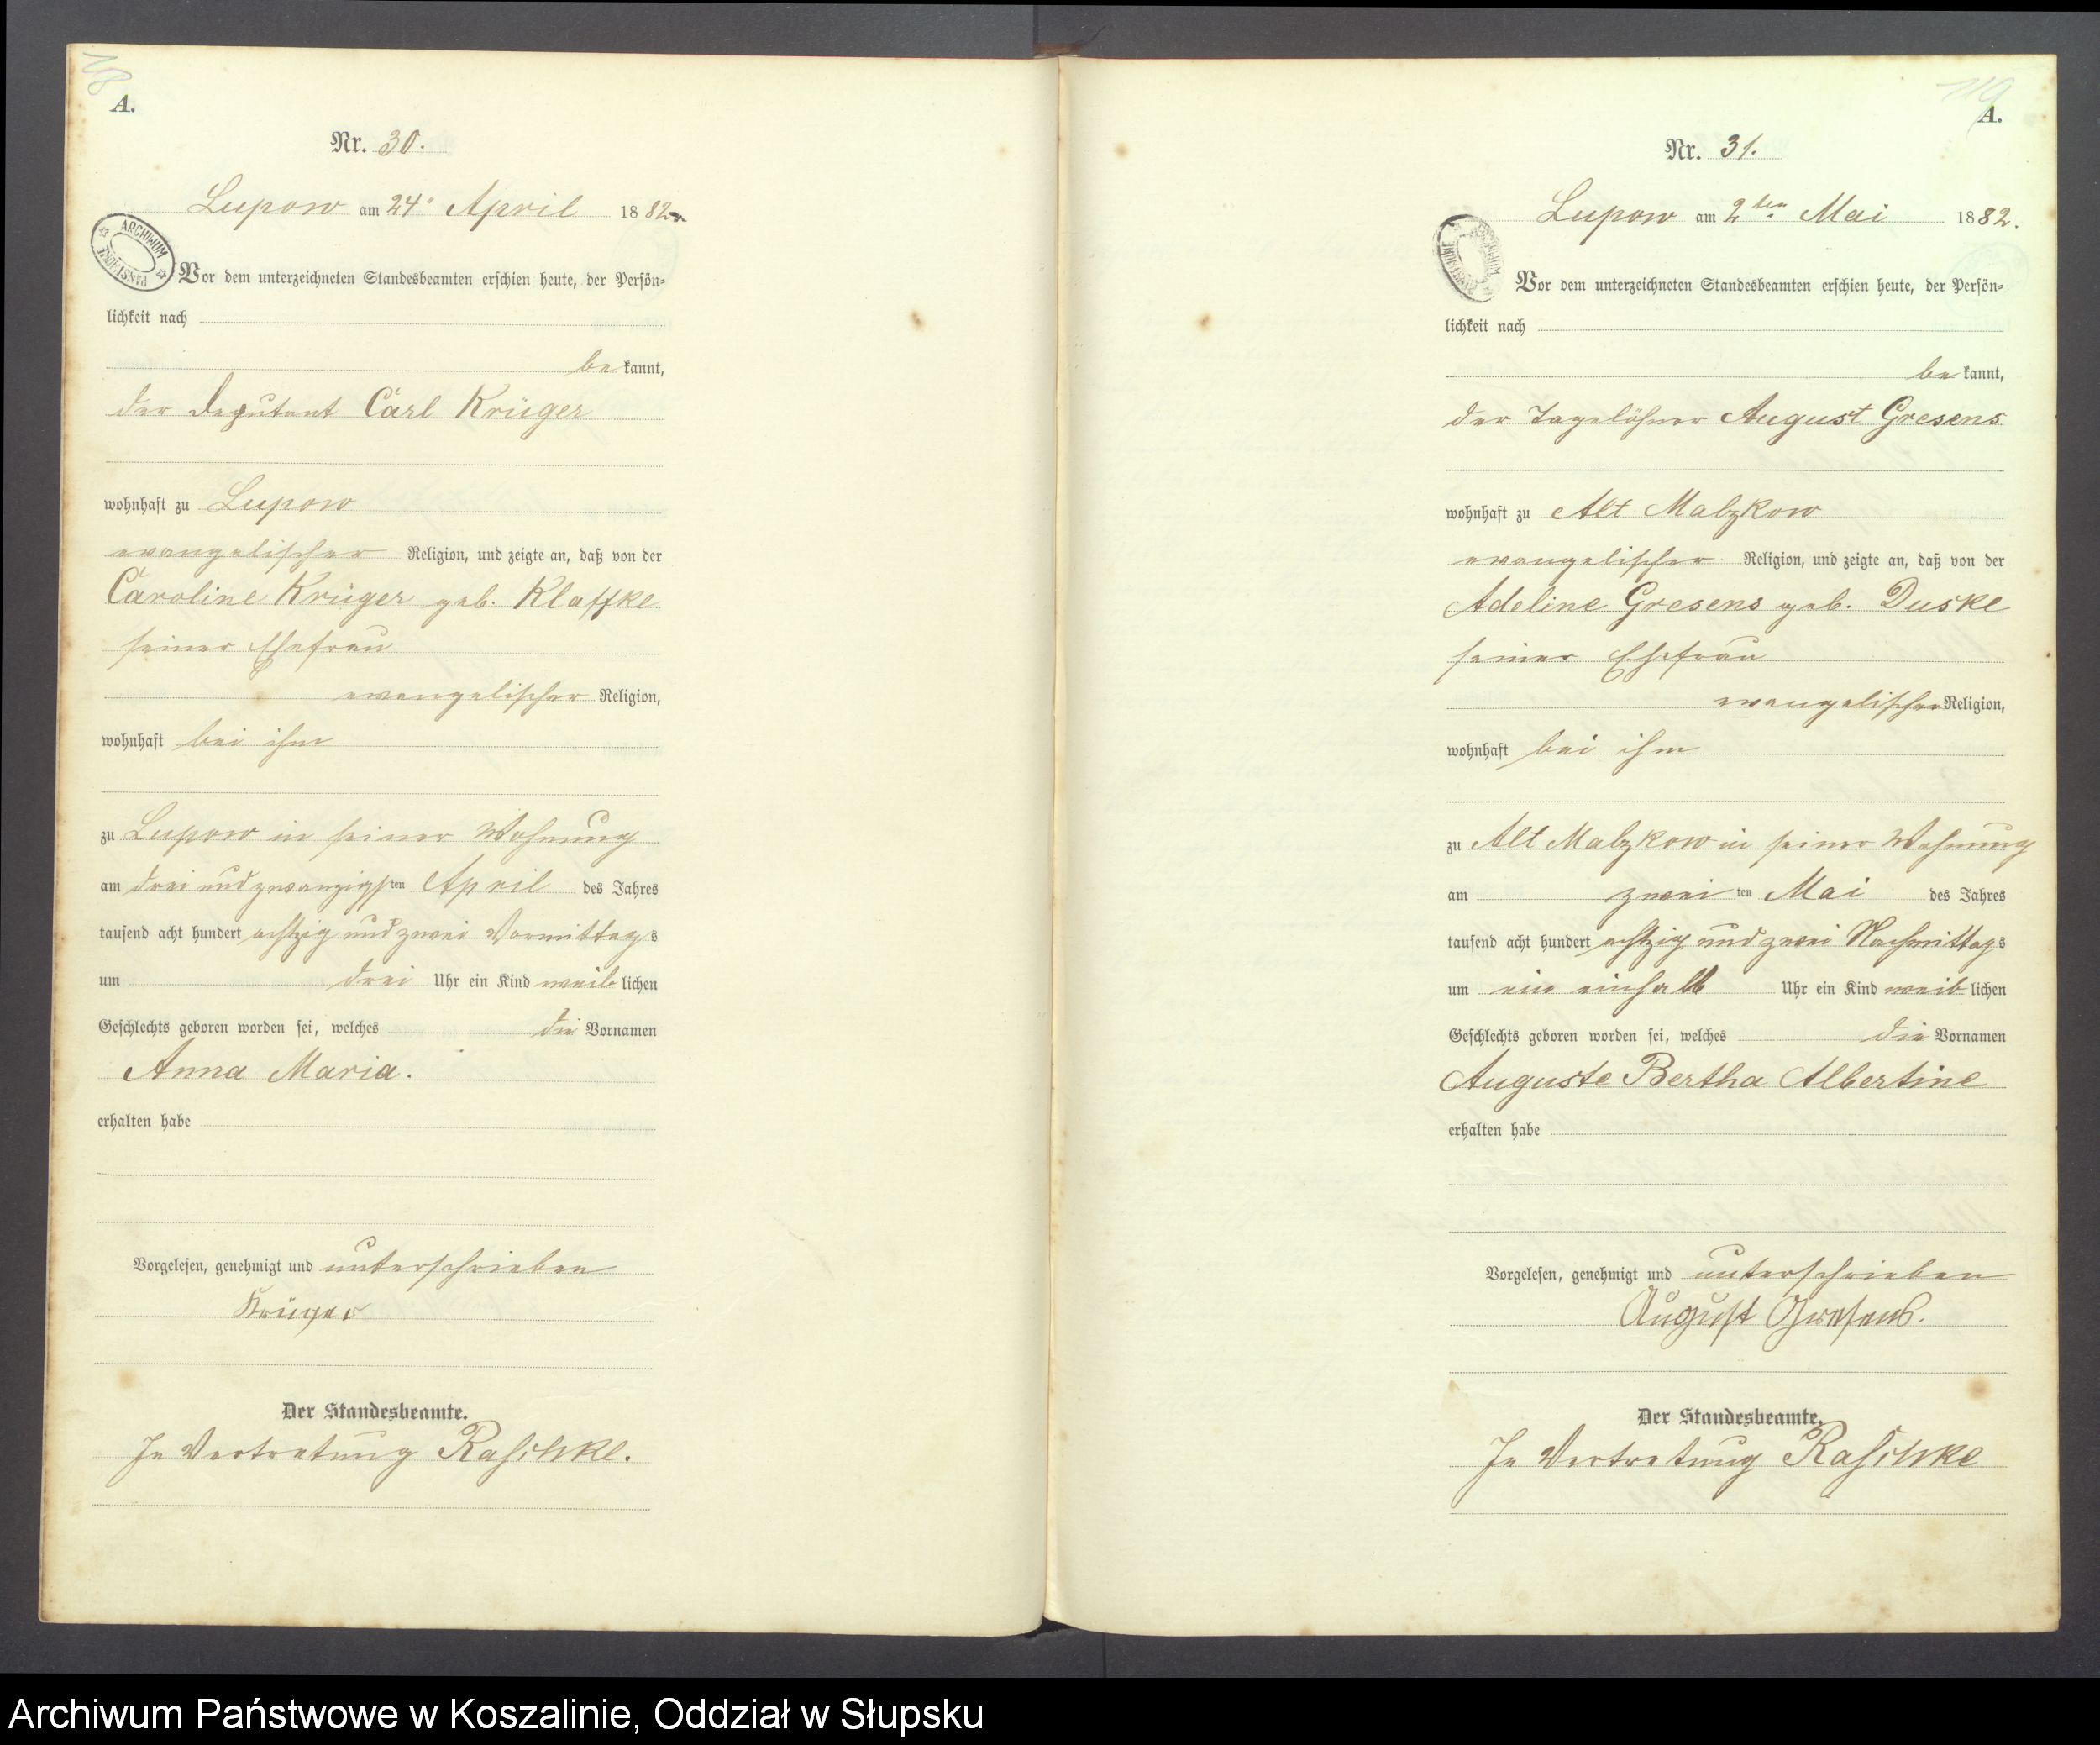 118
A.
Nr. 30.
Lupow am 24. April 1882.
ARCHIWUM PAŃSTWOWE
Vor dem unterzeichneten Standesbeamten erschien heute, der Persön-
lichkeit nach
bekannt,
der Deputant Carl Krüger
wohnhaft zu Lupow
evangelischer Religion, und zeigte an, daß von der
Caroline Krüger geb. Klaffke
seiner Ehefrau
evangelischer Religion,
wohnhaft bei ihm
zu Lupow in seiner Wohnung
am drei und zwanzigsten April des Jahres
tausend acht hundert achtzig und zwei Vormittags
um drei Uhr ein Kind weiblichen
Geschlechts geboren worden sei, welches die Vornamen
Anna Maria.
erhalten habe
Vorgelesen, genehmigt und unterschrieben
Krüger
Der Standesbeamte.
In Vertretung Raschke.
119
A.
Nr. 31.
Lupow am 2ten Mai 1882.
ARCHIWUM PAŃSTWOWE
Vor dem unterzeichneten Standesbeamten erschien heute, der Persön-
lichkeit nach
bekannt,
der Tagelöhner August Gresens
wohnhaft zu Alt Malzkow
evangelischer Religion, und zeigte an, daß von der
Adeline Gresens geb. Duske
seiner Ehefrau
evangelischer Religion,
wohnhaft bei ihm
zu Alt Malzkow in seiner Wohnung
am zweiten Mai des Jahres
tausend acht hundert achtzig und zwei Nachmittags
um ein einhalb Uhr ein Kind weiblichen
Geschlechts geboren worden sei, welches die Vornamen
Auguste Bertha Albertine
erhalten habe
Vorgelesen, genehmigt und unterschrieben
August Gresens.
Der Standesbeamte.
In Vertretung Raschke
Archiwum Państwowe w Koszalinie, Oddział w Słupsku